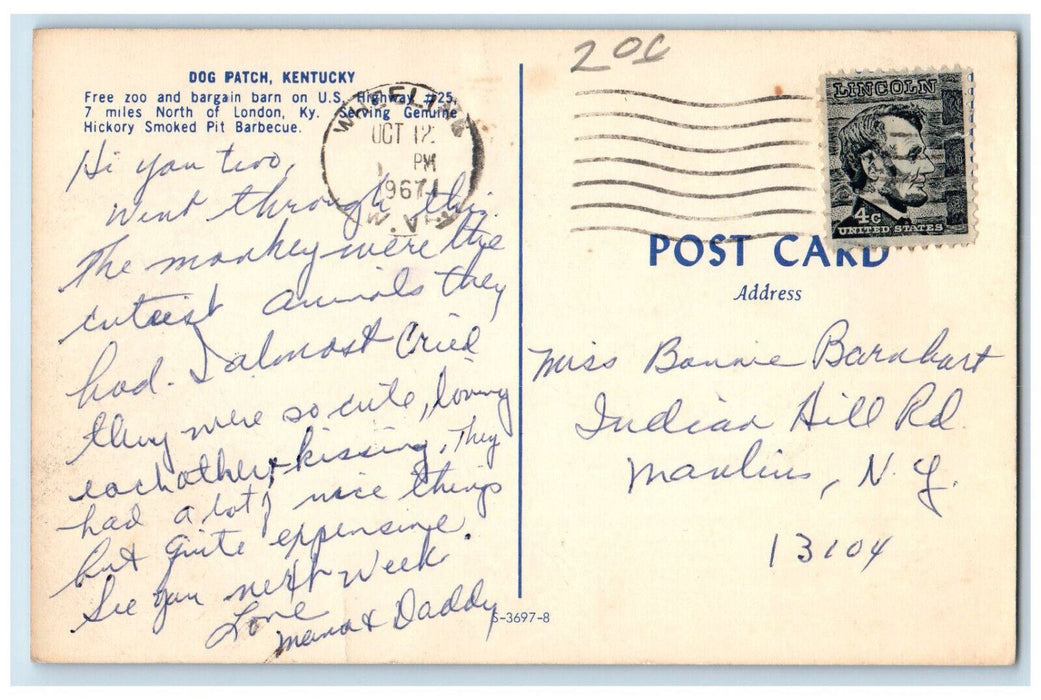 DOG PATCH, KENTUCKY
Free zoo and bargain barn on U.S. Highway #25,
7 miles North of London, Ky. Serving Genuine
Hickory Smoked Pit Barbecue.
Hi you two,
Went through this.
The monkey were the
cutiest animals they
had. I almost cried
they were so cute, loving
each other, + kissing. They
had a lot of nice things
but quite expensive.
See you next week.
Love
Mama & Daddy
S-3697-8
WHEELING
OCT 12
PM
1967
W.VA
20¢
LINCOLN
4c
UNITED STATES
POST CARD
Address
Miss Bonnie Barnhart
Indian Hill Rd.
Manlius, N.Y.
13104